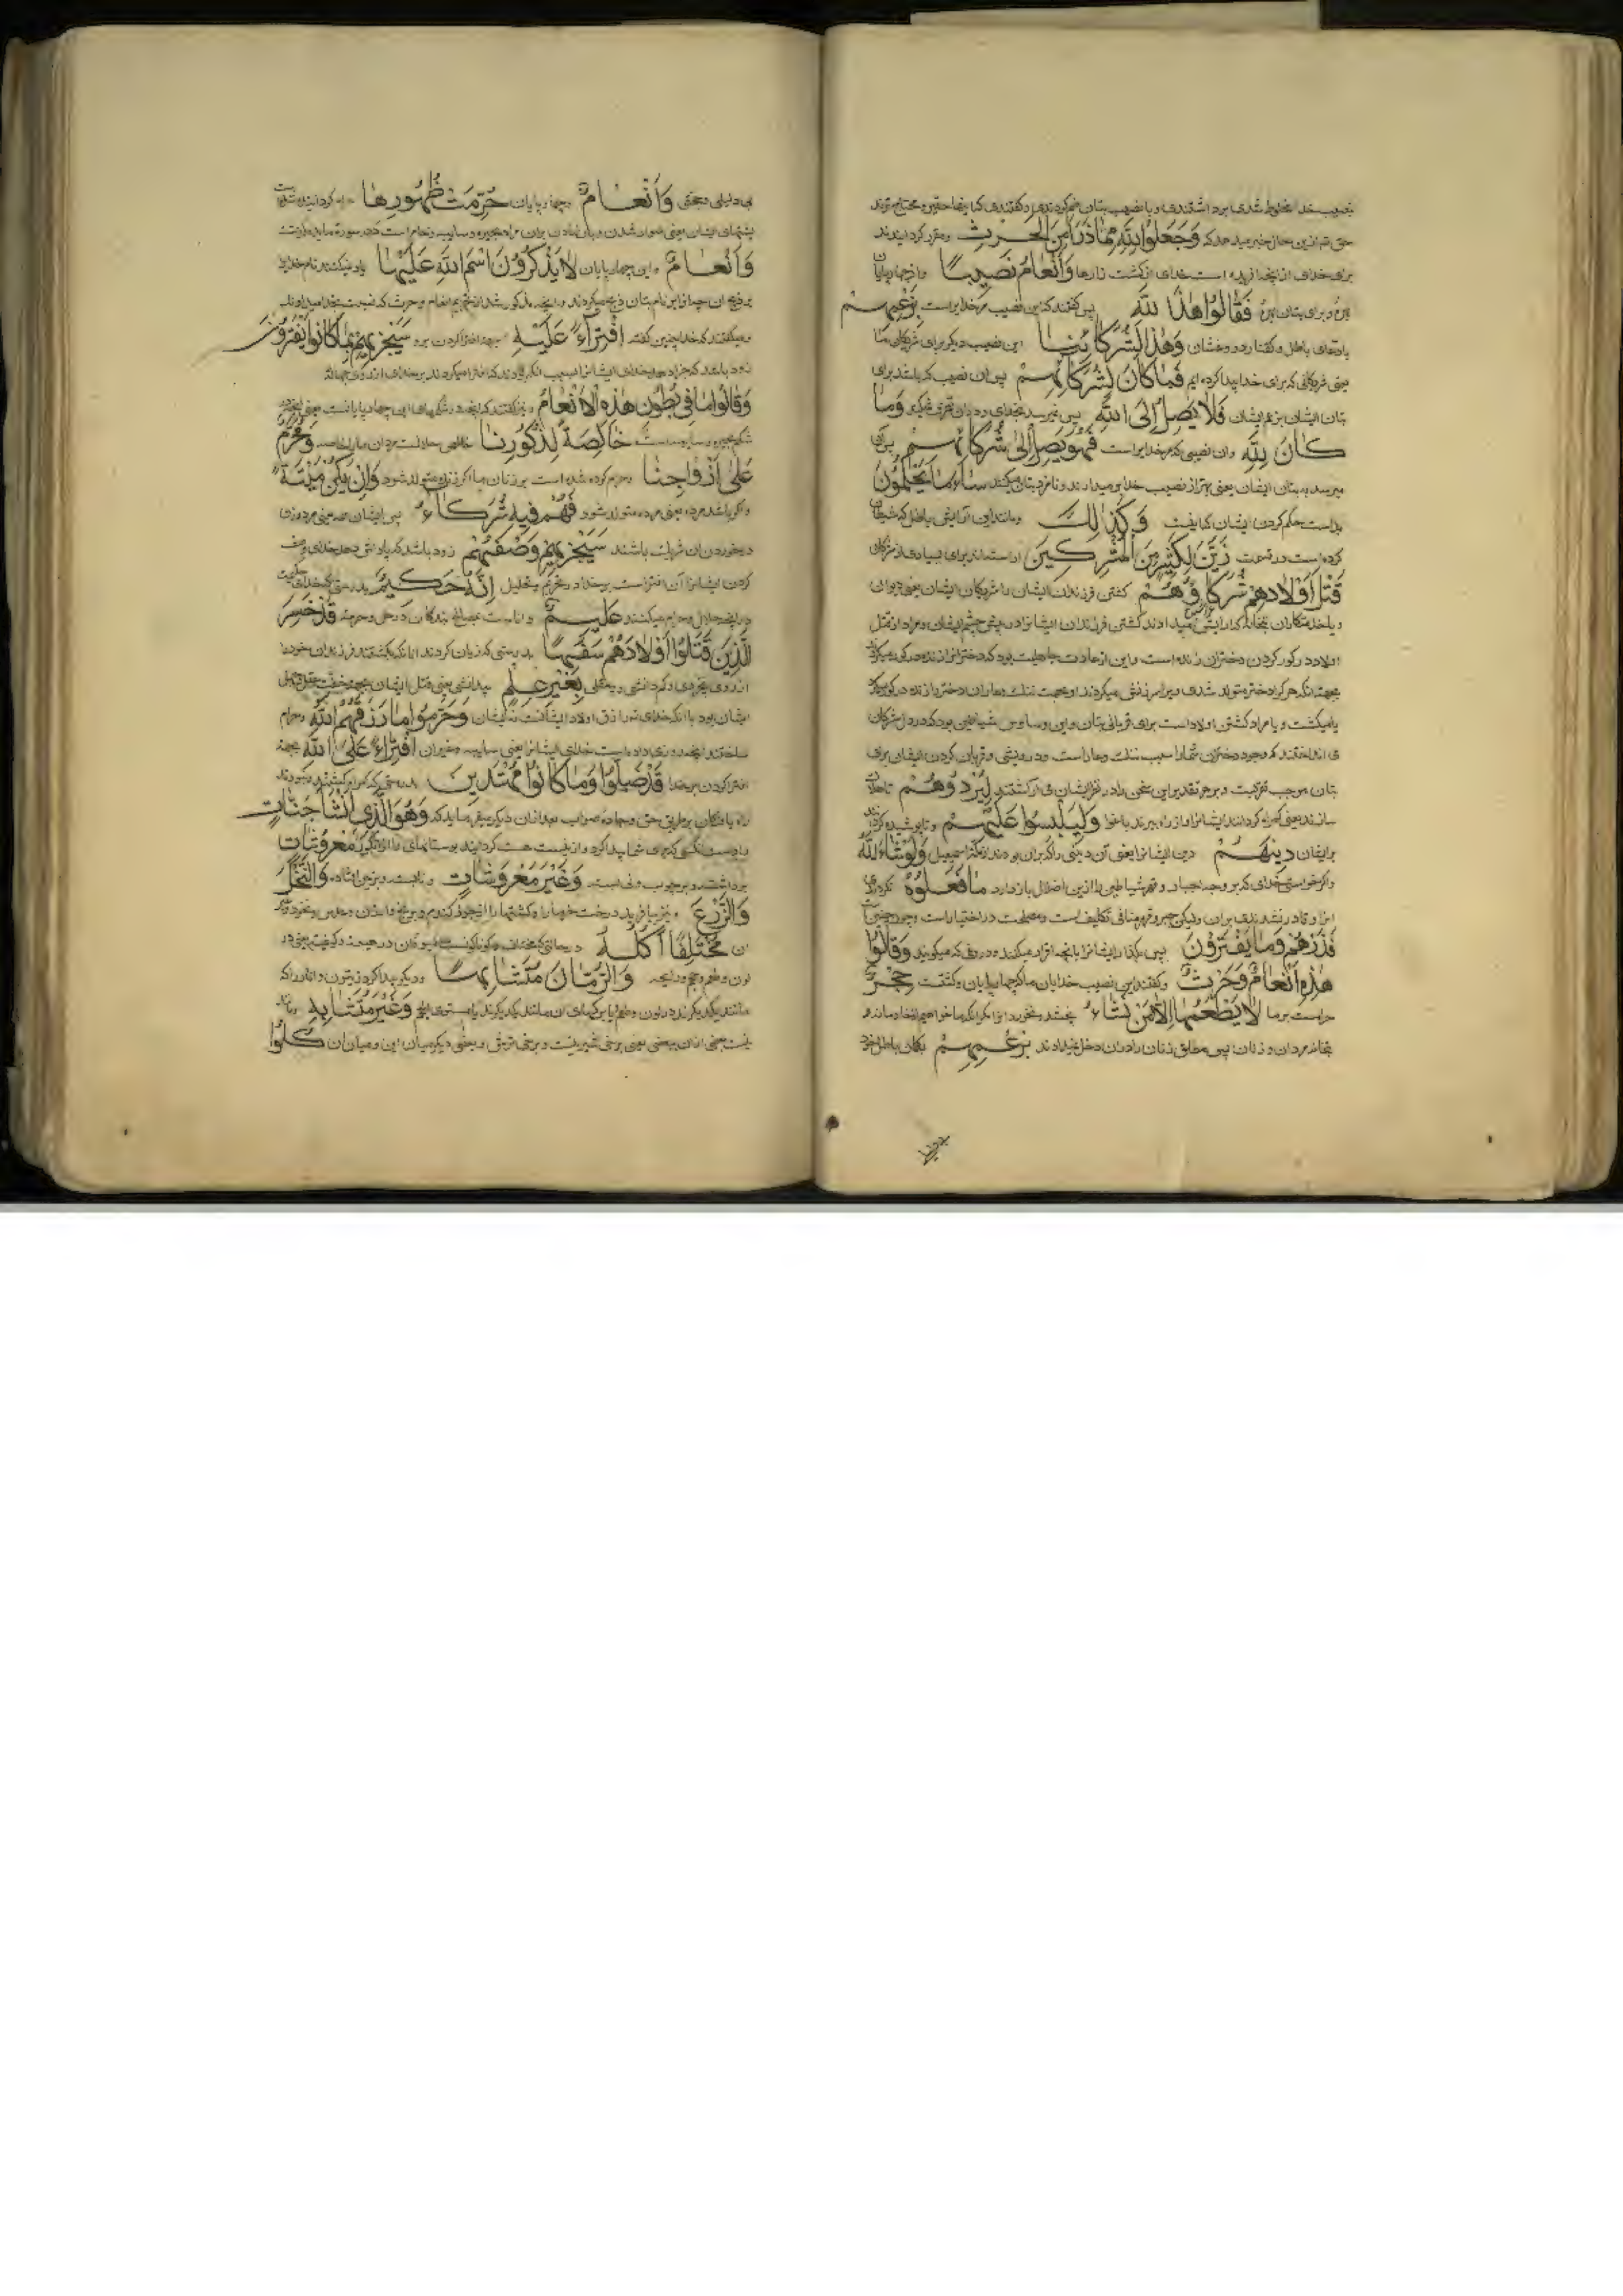 نصیب خدا مخلوط شدی برداشتندی و با نصیب بتان ضم کردندی و گفتندی که اینها محتاج ترند
حق تم ازین حال خبر میدهد که وَجَعَلُوا لِلّٰهِ مِمَّا ذَرَأَ مِنَ الْحَرْثِ و مقرر کردانیدند
برای خدای از انچه افریده است خدای از کشت زارها وَالْأَنْعَامِ نَصِيبًا و از چهارپایان
بهره و برای بتان بهره فَقَالُوا هٰذَا لِلّٰهِ پس گفتند که این نصیب مر خدایراست بِزَعْمِهِمْ
بادعای باطل و گفتار دروغشان وَهٰذَا لِشُرَكَائِنَا این نصیب دیگر برای شریکان ما
یعنی شریکانی که برای خدا پیدا کرده ایم فَمَا كَانَ لِشُرَكَائِهِمْ پس ان نصیب که باشد برای
بتان ایشان بزعم ایشان فَلَا يَصِلُ إِلَى اللّٰهِ پس نمیرسد بخدای وَمَا
كَانَ لِلّٰهِ وان نصیبی که مر خدایراست فَهُوَ يَصِلُ إِلَىٰ شُرَكَائِهِمْ پس آن
میرسد به بتان ایشان یعنی بهتر از نصیب خدا بر میدارند و نامزد بتان میکنند سَاءَ مَا يَحْكُمُونَ
بد است حکم کردن ایشان وَكَذٰلِكَ و مانند این آرایش باطل که شیطان
کرده است در قسمت زَيَّنَ لِكَثِيرٍ مِنَ الْمُشْرِكِينَ اراسته اند برای بسیاری از مشرکان
قَتْلَ أَوْلَادِهِمْ شُرَكَاؤُهُمْ کشتن فرزندان ایشان را شریکان ایشان یعنی دیوان
و یا خدمتکاران بتخانه که ارایش میدادند کشتن فرزندان ایشانرا در پیش چشم ایشان و مراد از قتل
اولاد در کور کردن دختران زنده است و این از عادت جاهلیت بود که دخترانرا زنده در کور میکردند
بجهت انکه هر کرا دختر متولد شدی ویرا سرزنش میکردند او بجهت ننک و عار ان دختر را زنده در کور میکرد
یا میکشت و یا مراد کشتن اولاد است برای قربانی بتان و این وساوس شیاطین بود که در دل مشرکان
می انداختند که وجود دختران شما را سبب ننک و عار است و درویشی و قربان کردن ایشان برای
بتان موجب قربت و بر هر تقدیر این سخن را در نظر ایشان می اراستند لِيُرْدُوهُمْ تا هلاک
سازند یعنی گمراه کردانند ایشانرا و از راه ببرند باغوا وَلِيَلْبِسُوا عَلَيْهِمْ و تا پوشیده کردانند
بر ایشان دِينَهُمْ دین ایشانرا یعنی آن دینی را که بران بودند از ملت اسمعیل وَلَوْ شَاءَ اللّٰهُ
و اگر خواستی خدای که بر وجه اجبار و قهر شیاطین را ازین اضلال باز دارد مَا فَعَلُوهُ نکردندی
انرا و قادر نشدندی بران و لیکن جبر و قهر منافی تکلیف است و مصلحت در اختیار است و چون چنین است
فَذَرْهُمْ وَمَا يَفْتَرُونَ پس بگذار ایشانرا بانچه افترا میکنند و دروغی که میگویند وَقَالُوا
هٰذِهِ أَنْعَامٌ وَحَرْثٌ و گفتند این نصیب خدایان ما که چهارپایان و کشتست حِجْرٌ
حرامست بر ما لَا يَطْعَمُهَا إِلَّا مَنْ نَشَاءُ نچشد و نخورد انرا مگر انکه ما خواهیم
بتخانه مردان و زنان پس مطلق زنان را دران دخل نمیدادند بِزَعْمِهِمْ بگمان باطل خود
بی دلیلی و حجتی وَأَنْعَامٌ و چهارپایان حُرِّمَتْ ظُهُورُهَا حرام کردانیده شده است
پشتهای ایشان یعنی سوار شدن و بار نهادن بران مراد بحیره و سایبه و حام است
وَأَنْعَامٌ و این چهارپایان لَا يَذْكُرُونَ اسْمَ اللّٰهِ عَلَيْهَا یاد نمیکنند نام خدایرا
بر ذبح ان چه انرا بر نام بتان ذبح میکردند و انچه مذکور شد از تحریم انعام و حرث که نسبت بخدا میدادند
و میگفتند که خدا چنین گفته افْتِرَاءً عَلَيْهِ بجهة افترا کردن برو سَيَجْزِيهِمْ بِمَا كَانُوا يَفْتَرُونَ
زود باشد که جزا دهد خدای ایشانرا بسبب انکه بودند که افترا میکردند بر خدای از روی جهالة
وَقَالُوا مَا فِي بُطُونِ هٰذِهِ الْأَنْعَامِ و نیز گفتند که انچه در شکمهای این چهارپایانست یعنی
شکم بحیره و سایبه است خَالِصَةٌ لِذُكُورِنَا خالص حلالست مردان ما را خاصه وَمُحَرَّمٌ
عَلَىٰ أَزْوَاجِنَا و حرام کرده شده است بر زنان ما اگر زنده متولد شود وَإِنْ يَكُنْ مَيْتَةً
و اگر باشد مرده یعنی مرده متولد شود فَهُمْ فِيهِ شُرَكَاءُ پس ایشان همه یعنی مرد و زن
در خوردن ان شریک باشند سَيَجْزِيهِمْ وَصْفَهُمْ زود باشد که پاداش دهد خدای وصف
کردن ایشانرا آن افتراست بر خدا در تحریم و تحلیل إِنَّهُ حَكِيمٌ بدرستی که خدای
در انچه حلال و حرام میکند عَلِيمٌ داناست بمصالح بندگان در حل و حرمة قَدْ خَسِرَ
الَّذِينَ قَتَلُوا أَوْلَادَهُمْ سَفَهًا بدرستی که زیان کردند انانکه بکشتند فرزندان خود را
از روی بیخردی و کم دانشی و بیعقلی بِغَيْرِ عِلْمٍ بیدانشی یعنی قتل ایشان بجهة خفت عقل و جهل
ایشان بود با انکه خدای تم رازق اولاد ایشانست نه ایشان وَحَرَّمُوا مَا رَزَقَهُمُ اللّٰهُ و حرام
ساختند انچه روزی داده است خدای ایشانرا یعنی سایبه و غیر ان افْتِرَاءً عَلَى اللّٰهِ بجهة
افترا کردن بر خدا قَدْ ضَلُّوا وَمَا كَانُوا مُهْتَدِينَ بدرستی که گمراه گشتند و نبودند
راه یافتگان بر طریق حق و جاده صواب بعد ازان دیگر میفرماید که وَهُوَ الَّذِي أَنْشَأَ جَنَّاتٍ
و اوست انکسی که برای شما پیدا کرد و از نیست هست کردانید بوستانهای را از انگور مَعْرُوشَاتٍ
برداشته و بر چوب و نی بسته وَغَيْرَ مَعْرُوشَاتٍ و نابسته و بر زمین افتاده وَالنَّخْلَ
وَالزَّرْعَ و نیز بیافرید درخت خرما را و کشتها را از جو و گندم و برنج و ارزن و عدس و نخود و دیگر
ان مُخْتَلِفًا أُكُلُهُ در حالتی که مختلف و گوناگونست میوه ان در هیئت و کیفیت یعنی در
لون و طعم و حجم و رایحه وَالزَّيْتُونَ وَالرُّمَّانَ مُتَشَابِهًا و دیگر پیدا کرد زیتون و انار را که
مانند یکدیگرند در لون و طعم یا برگهای ان مانند یکدیگرند وَغَيْرَ مُتَشَابِهٍ و نه مانند
نیست بعضی ازان ببعضی یعنی برخی شیرینست و برخی ترش و بعضی دیگر میان این و میان ان كُلُوا